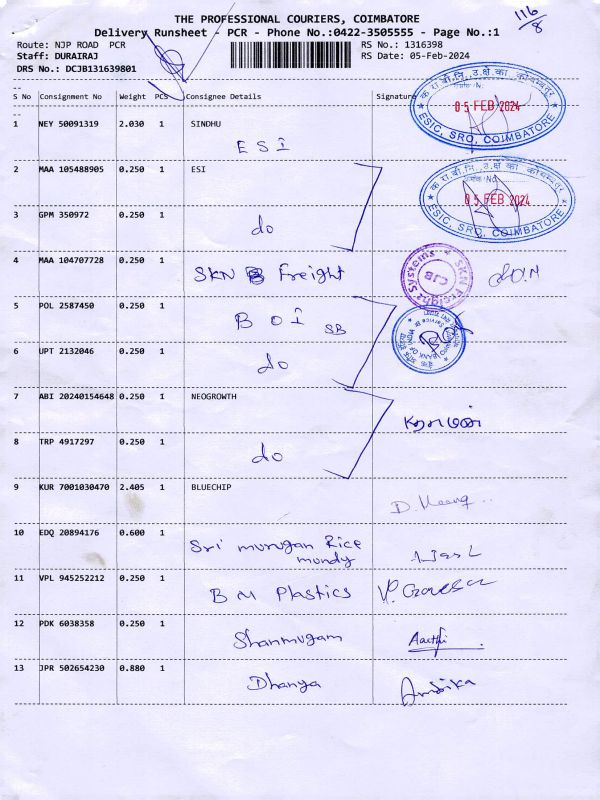 THE PROFESSIONAL COURIERS, COIMBATORE
116/8
Delivery Runsheet - PCR - Phone No.:0422-3505555 - Page No.:1
Route: NJP ROAD PCR
RS No.: 1316398
Staff: DURAIRAJ
RS Date: 05-Feb-2024
DRS No.: DCJB131639801
S No Consignment No Weight PCS Consignee Details Signature
1 NEY 50091319 2.030 1 SINDHU
ESI
05 FEB 2024
ESIC, SRO, COIMBATORE
2 MAA 105488905 0.250 1 ESI
05 FEB 2024
ESIC, SRO, COIMBATORE
3 GPM 350972 0.250 1
do
4 MAA 104707728 0.250 1
SKN Freight
SKN Freight Systems
CJB
5 POL 2587450 0.250 1
BOI SB
6 UPT 2132046 0.250 1
do
7 ABI 20240154648 0.250 1 NEOGROWTH
8 TRP 4917297 0.250 1
do
9 KUR 7001030470 2.405 1 BLUECHIP
10 EDQ 20894176 0.600 1
Sri murugan Rice
mundy
11 VPL 945252212 0.250 1
BM Plastics
12 PDK 6038358 0.250 1
Shanmugam Aarthi
13 JPR 502654230 0.880 1
Dhanya